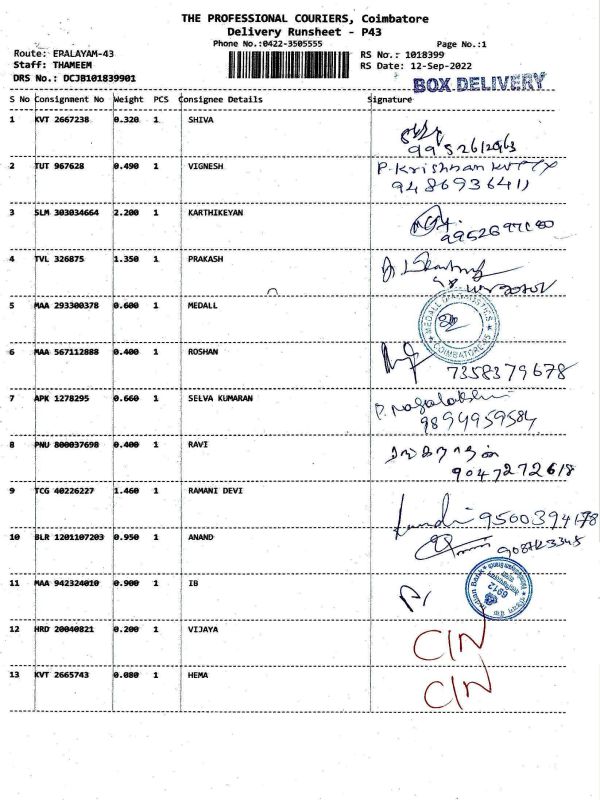 THE PROFESSIONAL COURIERS, Coimbatore
Delivery Runsheet - P43
Phone No.:0422-3505555 Page No.:1
Route: ERALAYAM-43 RS No.: 1018399
Staff: THAMEEM RS Date: 12-Sep-2022
DRS No.: DCJB101839901 BOX DELIVERY
S No Consignment No Weight PCS Consignee Details Signature
1 KVT 2667238 0.320 1 SHIVA
2 TUT 967628 0.490 1 VIGNESH P. Krishnan
9486936411
3 SLM 303034664 2.200 1 KARTHIKEYAN
4 TVL 326875 1.350 1 PRAKASH
5 MAA 293300378 0.600 1 MEDALL
6 MAA 567112888 0.400 1 ROSHAN
7358379678
7 APK 1278295 0.660 1 SELVA KUMARAN P. Nagalakshmi
9894959584
8 PNU 800037698 0.400 1 RAVI
9047272618
9 TCG 40226227 1.460 1 RAMANI DEVI
9500394178
10 BLR 1201107203 0.950 1 ANAND
11 MAA 942324010 0.900 1 IB
Indian Bank
6912
12 HRD 20040821 0.200 1 VIJAYA CIN
13 KVT 2665743 0.080 1 HEMA CIN